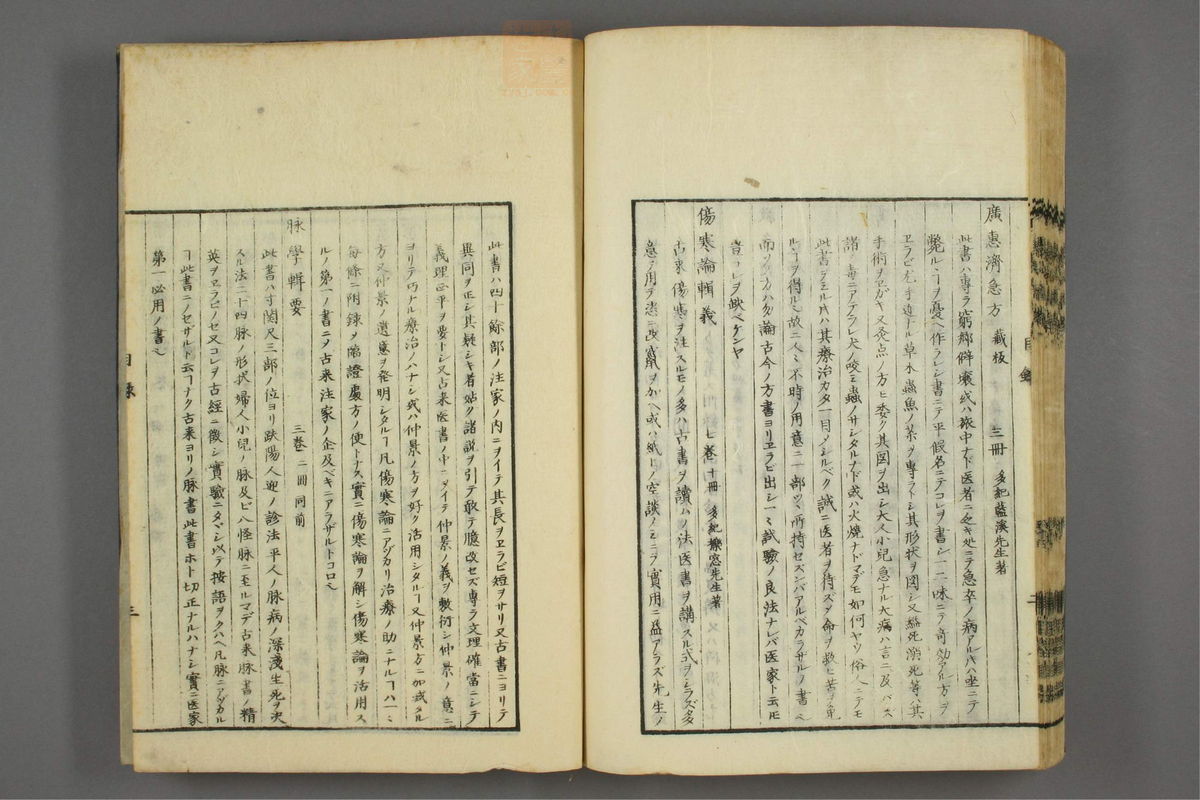 廣惠濟急方 藏板 三冊 多紀藍溪先生著
此書ハ専ラ窮郷僻壤或ハ旅中ナド医者ニ乏キ処ニテ急卒ノ病アル片ハ坐ニテ
斃ルヽヿヲ憂ヘ作ラレシ書ニテ平假名ニテコレヲ書シ一二味ニテ奇効アル方ヲ
ヱラビ左手近ナル草木蟲魚ノ茶ヲ専ラトシ其形状ヲ図シ又縊死溺死等ノ其
手術ヲヱガキ又灸点ノ方ヒ委ク其図ヲ出シ大人小兒急ナル大病ハ言ニ及バズ
諸ノ毒ニアテラレ犬ノ咬ミ蟲ノサシタルナド或ハ火焼ナドマデモ如何ヤウ俗人ニテモ
此書ヲミル片ハ其療治カタ一目ノシルベク誠ニ医者ヲ待ズメ命ヲ救ヒ苦ヲ免
ルヽヿヲ得ルミ故ニ人々不時ノ用意ニ一部ヅヽ所持セズンバアルベカラザルノ書ヘ
而ノ方ハ勿論古今ノ方書ヨリヱラビ出シ一々試驗ノ良法ナレバ医家ト云ドモ
豈コレヲ缺ベケンヤ
傷寒論輯義 七巻十冊 多紀櫟窓先生著
古来傷寒ヲ注スルモノ多ハ古書ヲ讀ハノ法医書ヲ講スル式ヲシラズ多
意ヲ用テ恣ニ改竄ヲ加ヘ或ハ紙上ノ空談ノミニテ實用ニ益アラズ先生ノ
目錄 二
此書ハ四十餘部ノ注家ノ内ニヲイテ其長ヲヱラビ短ヲサリ又古書ニヨリテ
異同ヲ正シ其疑シキ者姑ク諸説ヲ引テ敢テ臆改セズ專ラ文理確當ニシテ
義理正平ヲ要トシ又古来医書ノ中ニヲイテ仲景ノ義ヲ敷衍シ仲景ノ意ニ
ヨリテ巧ナル療治ノハナシ或ハ仲景ノ方ヲ好ク活用シタルヿ又仲景方ニ加減タル
方又仲景ノ遺意ヲ発明シタルヿ凡傷寒論ニアヅカリ治療ノ助ニナルヿハ一々
毎條ニ附錄ヲ臨證處方ノ便トナス實ニ傷寒論ヲ解シ傷寒論ヲ活用ス
ルノ第一ノ書ニメ古来注家ノ企及ベキニアラザルトコロヘ
脉學輯要 三巻 二冊 同前
此書ハ寸関尺三部ノ位ヨリ趺陽人迎ノ診法平人ノ脉病ノ深淺生死ヲ决
スル法二十四脉ノ形状婦人小兒ノ脉及ビ八怪脉ニ至ルマデ古来脉書ノ精
英ヲヱラビノセ又コレヲ古經ニ徴シ實驗ニタメシ以テ按語ヲクハヘ凡脉ニアヅカル
ヿ此書ニノセザルト云ヿナク古来ヨリノ脉書此書ホト切正ナルハナシ實ニ医家
第一必用ノ書ヘ
目錄 三